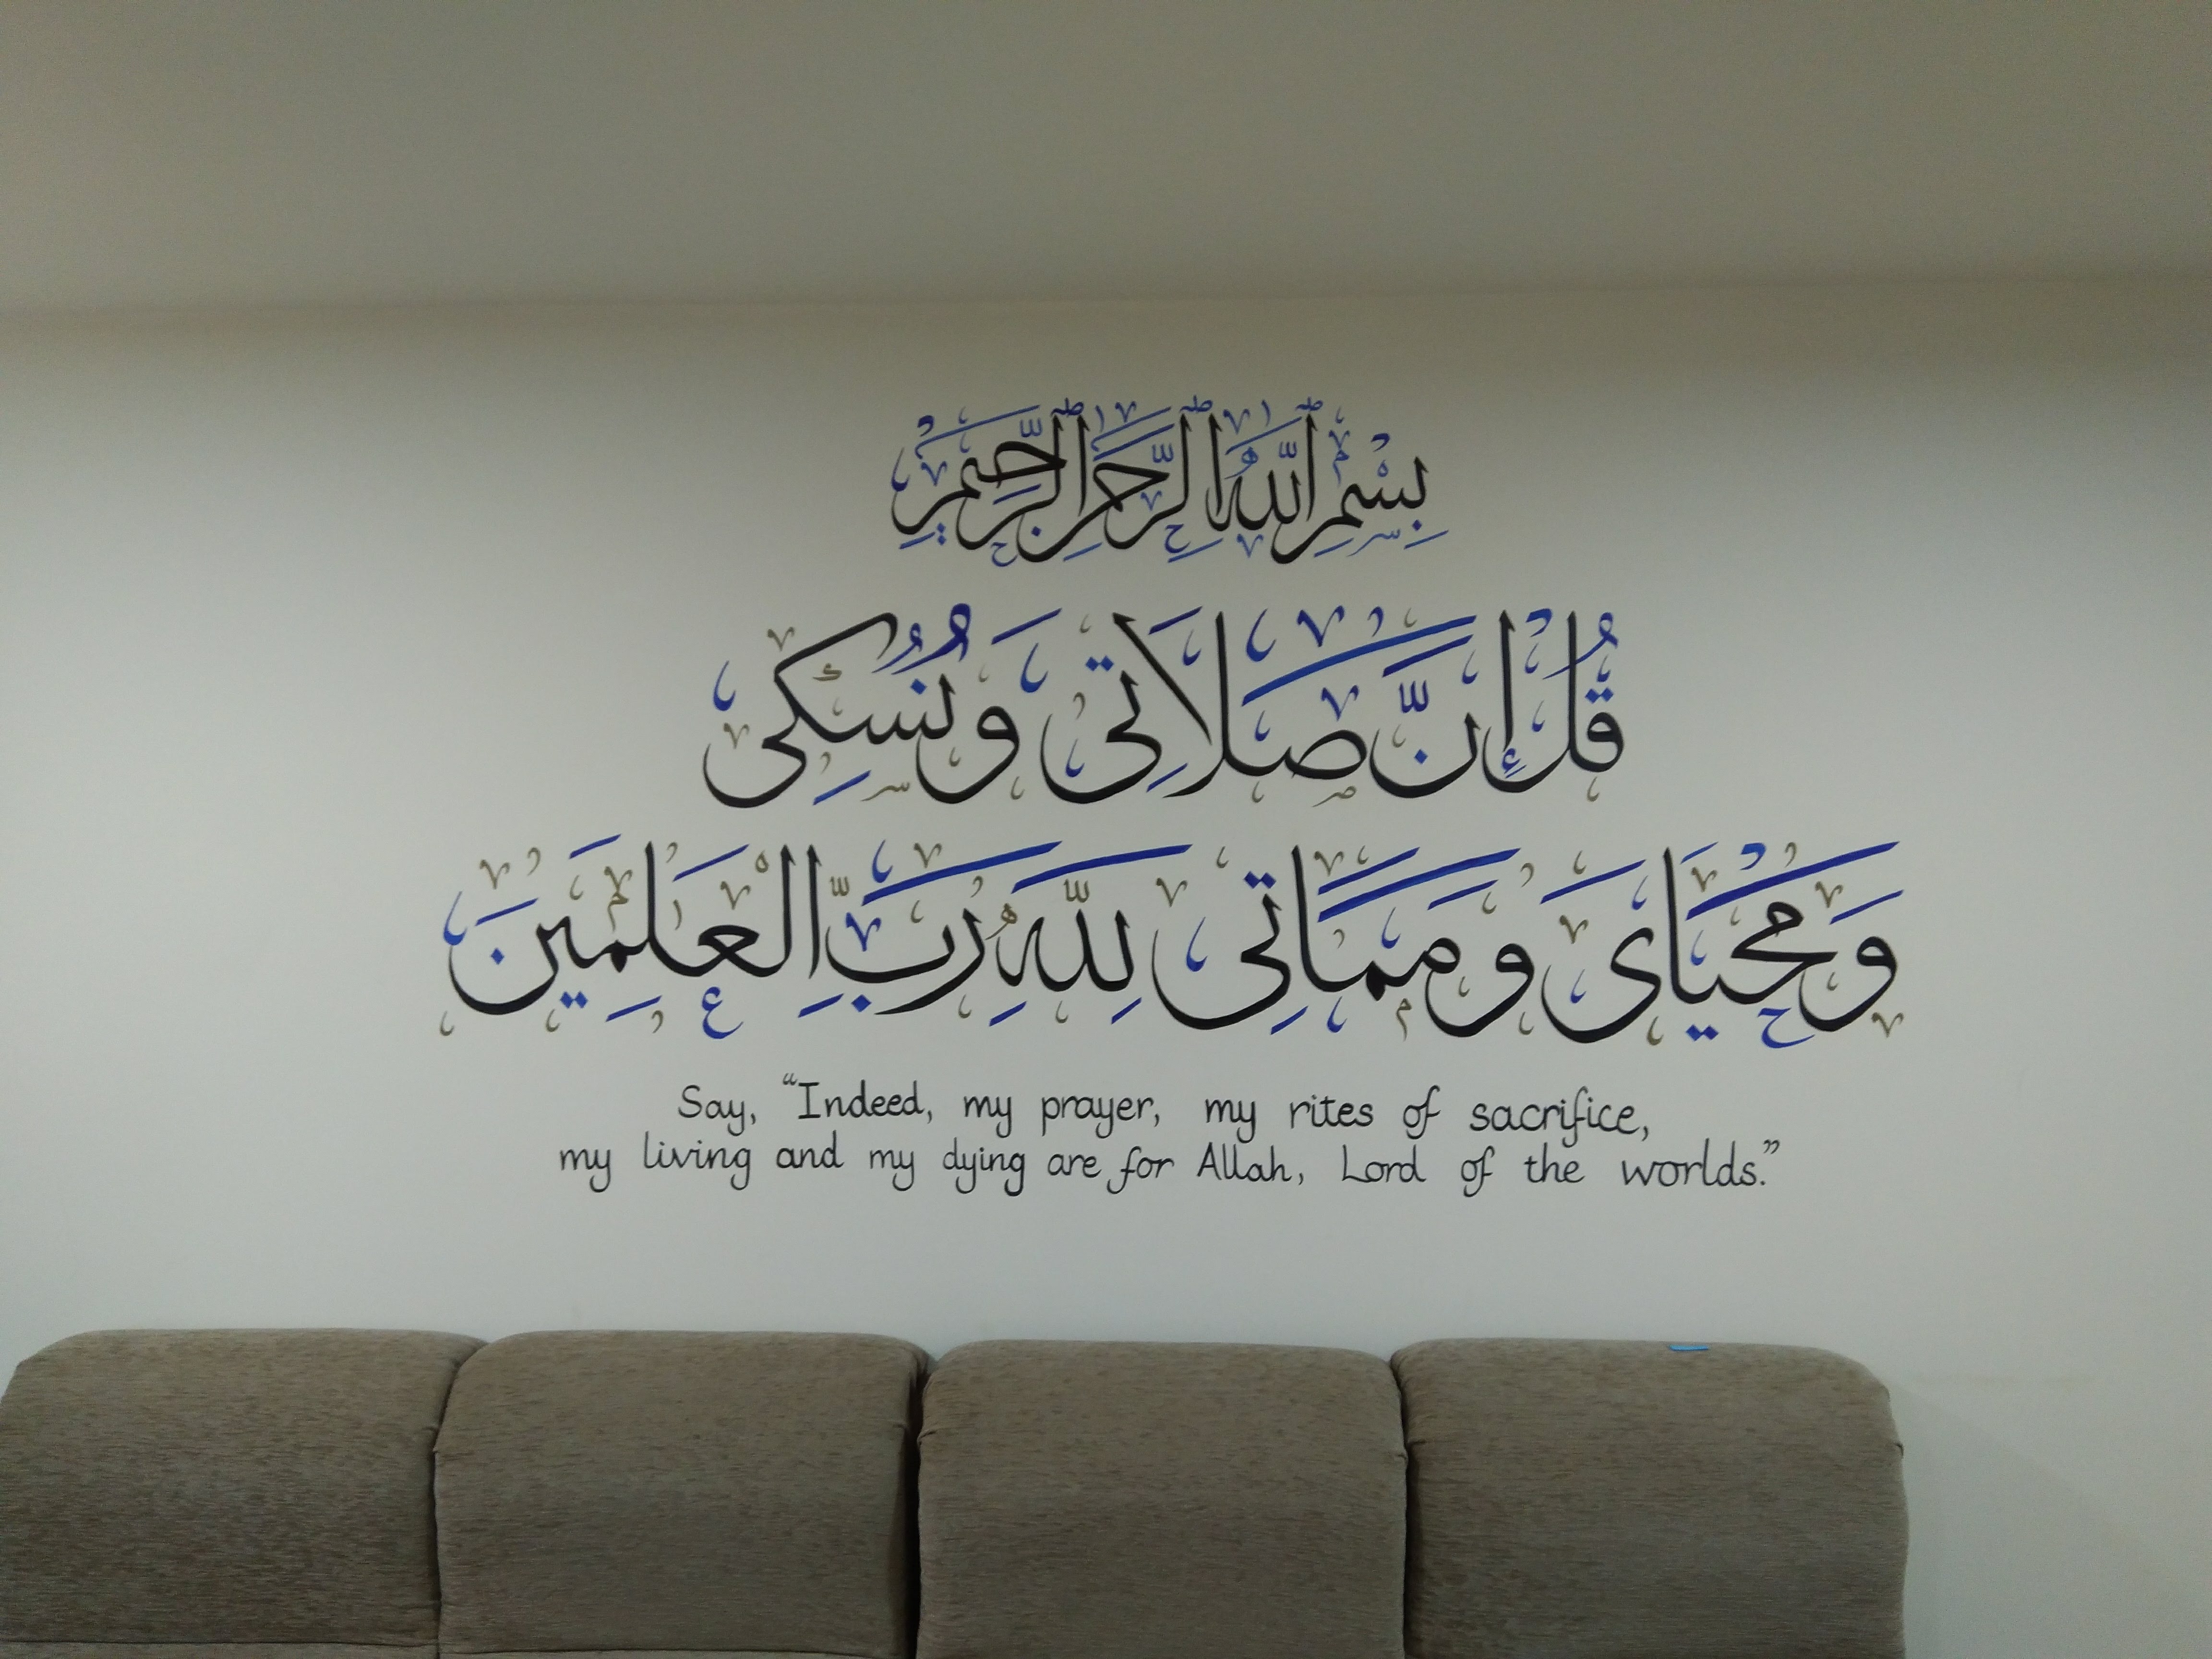 بِسْمِ ٱللَّهِ ٱلرَّحْمَٰنِ ٱلرَّحِيمِ
قُلْ إِنَّ صَلَاتِى وَنُسُكِى
وَمَحْيَاىَ وَمَمَاتِى لِلَّهِ رَبِّ الْعَٰلَمِينَ
Say, “Indeed, my prayer, my rites of sacrifice,
my living and my dying are for Allah, Lord of the worlds.”